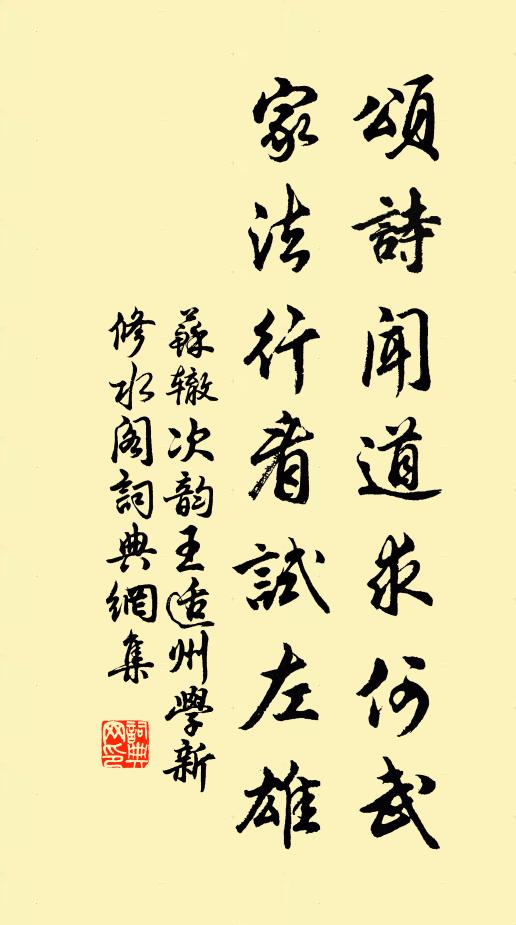 頌詩聞道求何武
家法行看試左雄
蘇轍次韵王适州學新
修水閣詞典網集
詞典網印